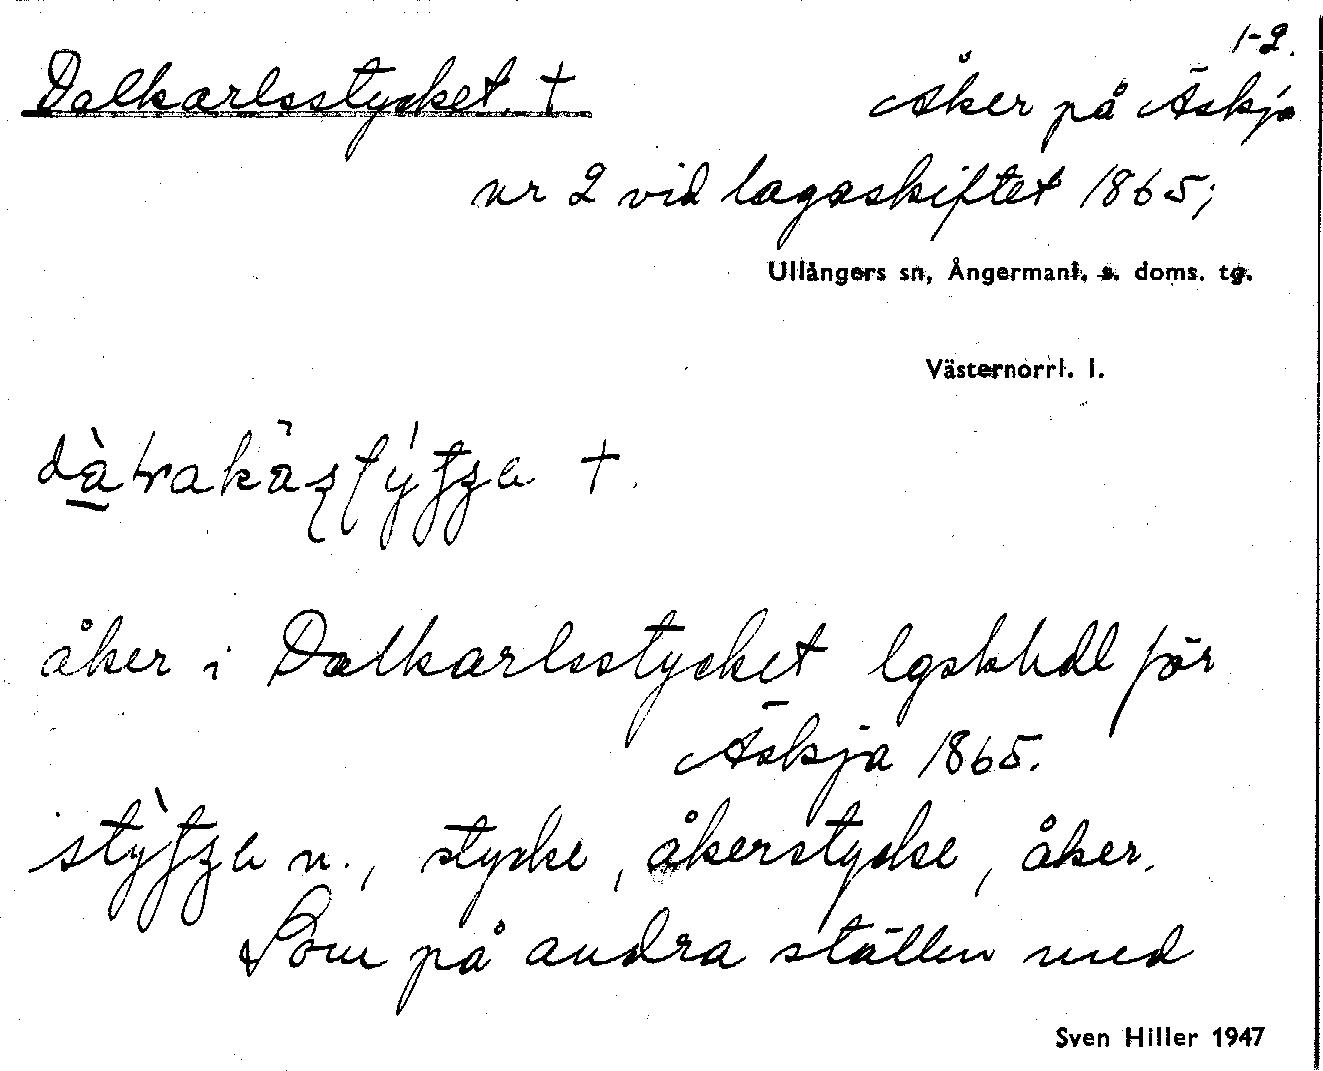 1-2.
Dalkarlsstycket. † Åker på Äskja
nr 2 vid lagaskiftet 1865;
Ullångers sn, Ångermanl. s. doms. tg.
Västernorrl. l.
†.
åker i Dalkarlsstycket lgskhdl för
Äskja 1865.
n., stycke, åkerstycke, åker.
Som på andra ställen med
Sven Hiller 1947